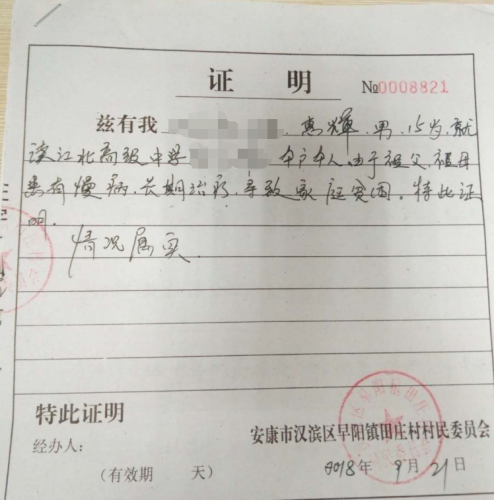 证 明
№0008821
兹有我 惠輝,男,15岁,就
读江北高级中学 本户本人由于祖父,祖母
患有慢病、长期治疗,导致家庭贫困。特此证
明.
情况属实.
特此证明
经办人:
安康市汉滨区早阳镇田庄村村民委员会
(有效期 天)
2018年 9月21日